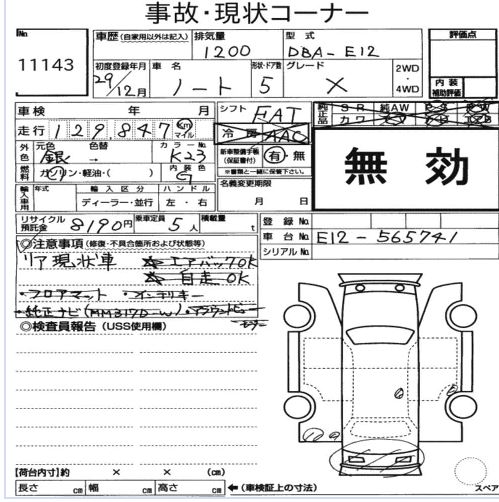 事故・現状コーナー
No
11143
車歴(自家用以外は記入)
排気量
1200
型式
DBA-E12
評価点
初度登録年月
29/12月
車名
ノート
形状・ドア数
5
グレード
X
2WD
・
4WD
内装
補助評価
車検 年 月
シフト
FAT
純正品
SR 純AW
カワ
走行
129,847
km
マイル
冷房
AAC
外色
元色
銀
色替
→
カラーNo
K23
新車整備手帳
(保証書付)
有・無
※書類と一緒に保管して下さい。
無効
燃料
ガソリン・軽油・( )
内装色
G
名義変更期限
月 日
輸入車用
年式
輸入区分
ディーラー・並行
ハンドル
左・右
リサイクル預託金
8190円
乗車定員
5人
積載量
t
登録No
車台No
E12-565741
シリアルNo
◎注意事項(修復・不具合箇所および状態等)
リア現状車 ☆エアバッグOK
☆自走OK
・フロアマット ・インテリキー
・純正ナビ(MM317D-W)・アラウンドビューモニター
◎検査員報告(USS使用欄)
【荷台内寸】約 × × (cm)
長さ cm 幅 cm 高さ cm ←(車検証上の寸法)
スペア